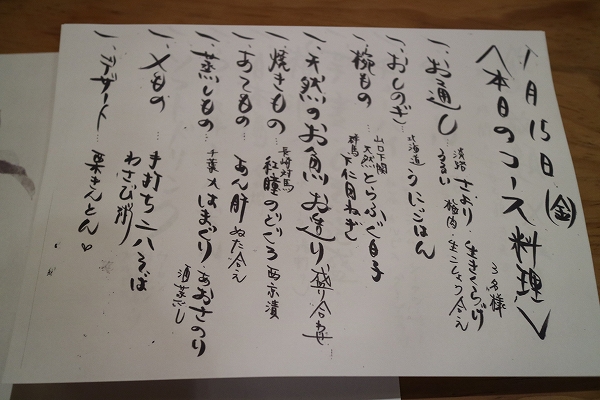 1月15日(金)
〈本日のコース料理〉
3名様
一、お通し…淡路さより・生きくらげ
うるい 梅肉・生こしょう合え
一、おしのぎ…北海道うにごはん
一、椀もの…山口下関天然とらふぐ白子
群馬下仁田ねぎ
一、天然のお魚お造り盛り合わせ
一、焼きもの…長崎対馬紅瞳のどぐろ西京漬
一、あてもの…あん肝ぬた合え
一、蒸しもの…千葉大はまぐり・あおさのり
酒蒸し
一、〆もの…手打ち二八そば
わさび粥
一、デザート…栗きんとん♡